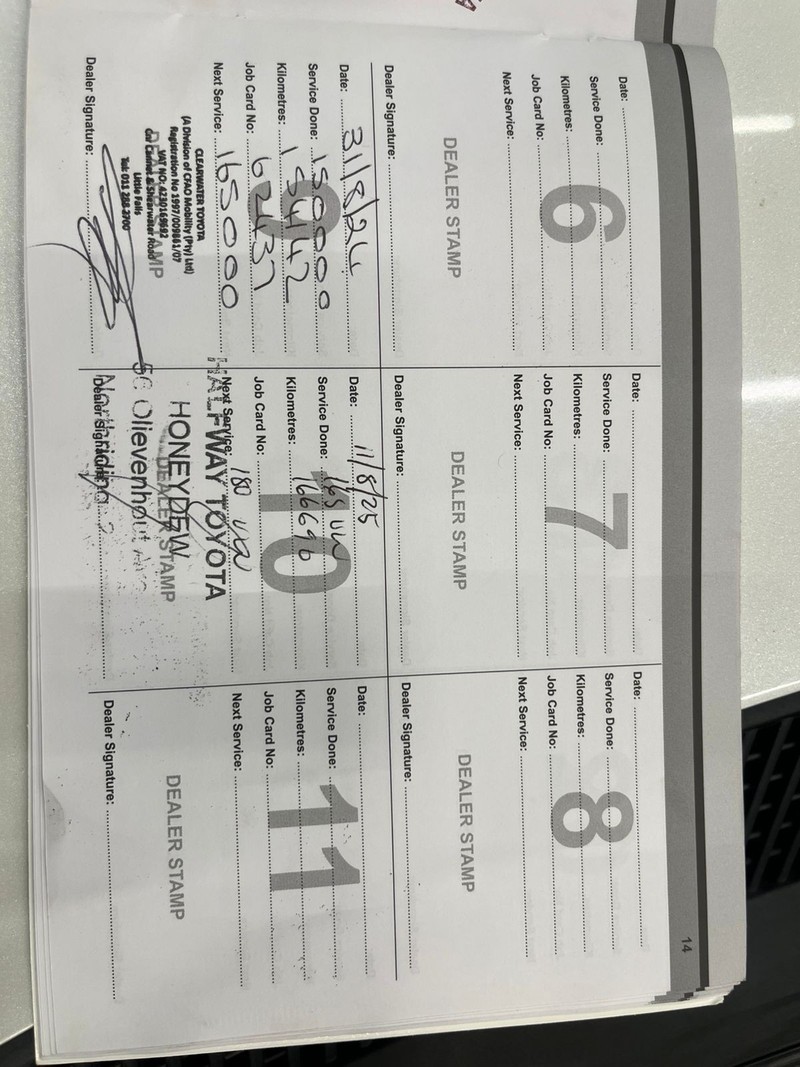 14
6
Date:
Service Done:
Kilometres:
Job Card No:
Next Service:
DEALER STAMP
Dealer Signature:
7
Date:
Service Done:
Kilometres:
Job Card No:
Next Service:
DEALER STAMP
Dealer Signature:
8
Date:
Service Done:
Kilometres:
Job Card No:
Next Service:
DEALER STAMP
Dealer Signature:
9
Date: 31/8/24
Service Done: 150000
Kilometres: 154142
Job Card No: 62437
Next Service: 165000
CLEARWATER TOYOTA
(A Division of CFAO Mobility (Pty) Ltd)
Registration No 1997/009861/07
VAT NO: 4230169692
DEALER STAMP
Cnr Clarinet & Shearwater Road
Little Falls
Tel: 011 288 3700
Dealer Signature:
10
Date: 11/8/25
Service Done: 165
Kilometres: 166696
Job Card No:
Next Service: 180
HALFWAY TOYOTA
HONEYDEW
DEALER STAMP
Olievenhout
Northriding
Dealer Signature:
11
Date:
Service Done:
Kilometres:
Job Card No:
Next Service:
DEALER STAMP
Dealer Signature: